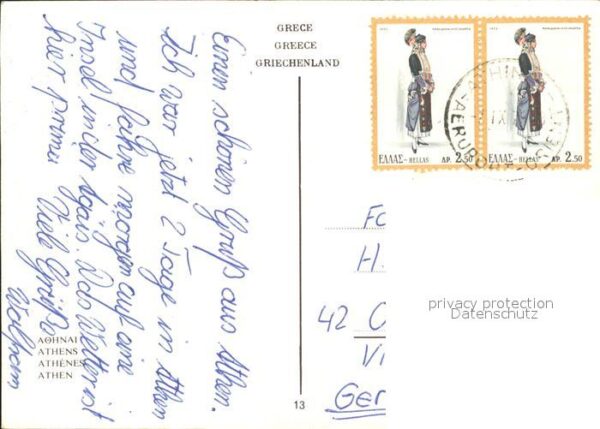 GRECE
GREECE
GRIECHENLAND
Einen schönen Gruß aus Athen.
Ich war jetzt 2 Tage in Athen
und fahre morgen auf eine
Insel in der Ägäis. Das Wetter ist
hier prima. Viele Grüße
Wolfram
ΑΘΗΝΑΙ
ATHENS
ATHÈNES
ATHEN
13
ΕΛΛΑΣ-HELLAS ΔΡ. 2.50
ΕΛΛΑΣ-HELLAS ΔΡ. 2.50
H.
42 O
Vi
Ger
privacy protection
Datenschutz